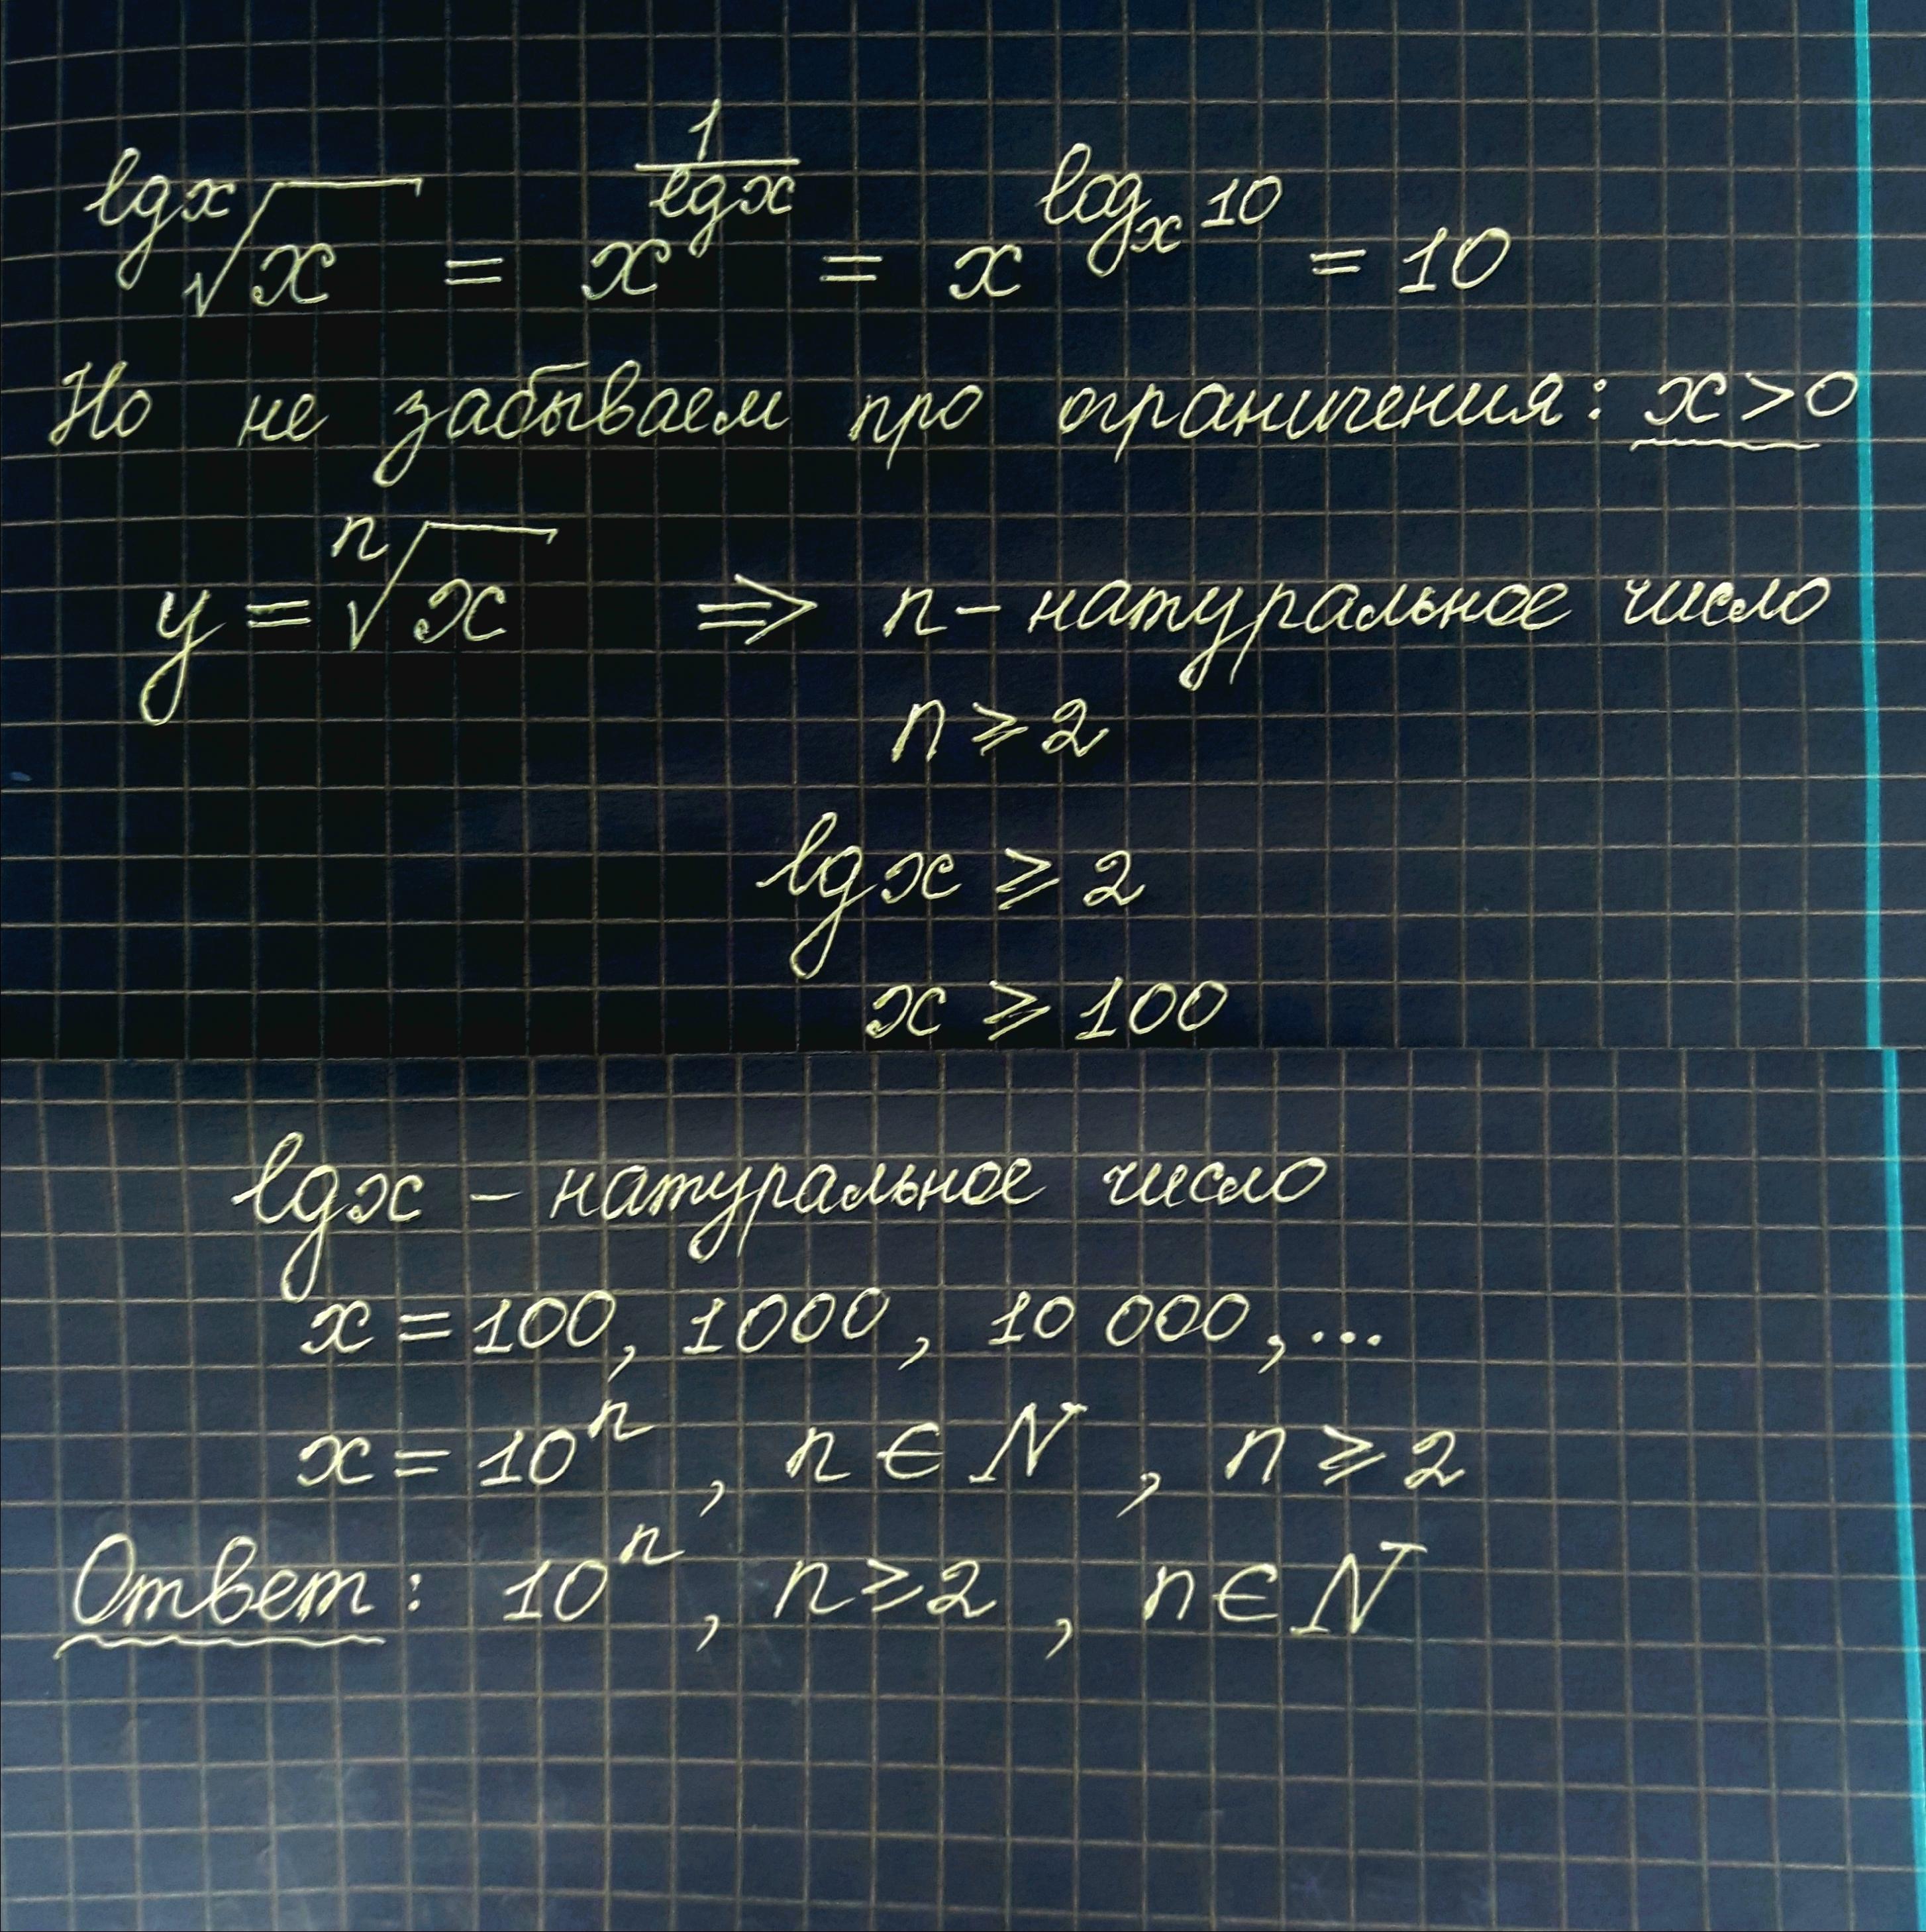 $\sqrt[\lg x]{x} = x^{\frac{1}{\lg x}} = x^{\log_x 10} = 10$
Но не забываем про ограничения: x>0
$y = \sqrt[n]{x}$ ⇒ n – натуральное число
n ⩾ 2
lg x ⩾ 2
x ⩾ 100
lg x – натуральное число
x = 100, 1000, 10 000, ...
$x = 10^n$, n ∈ N, n ⩾ 2
Ответ: $10^n$, n ⩾ 2, n ∈ N